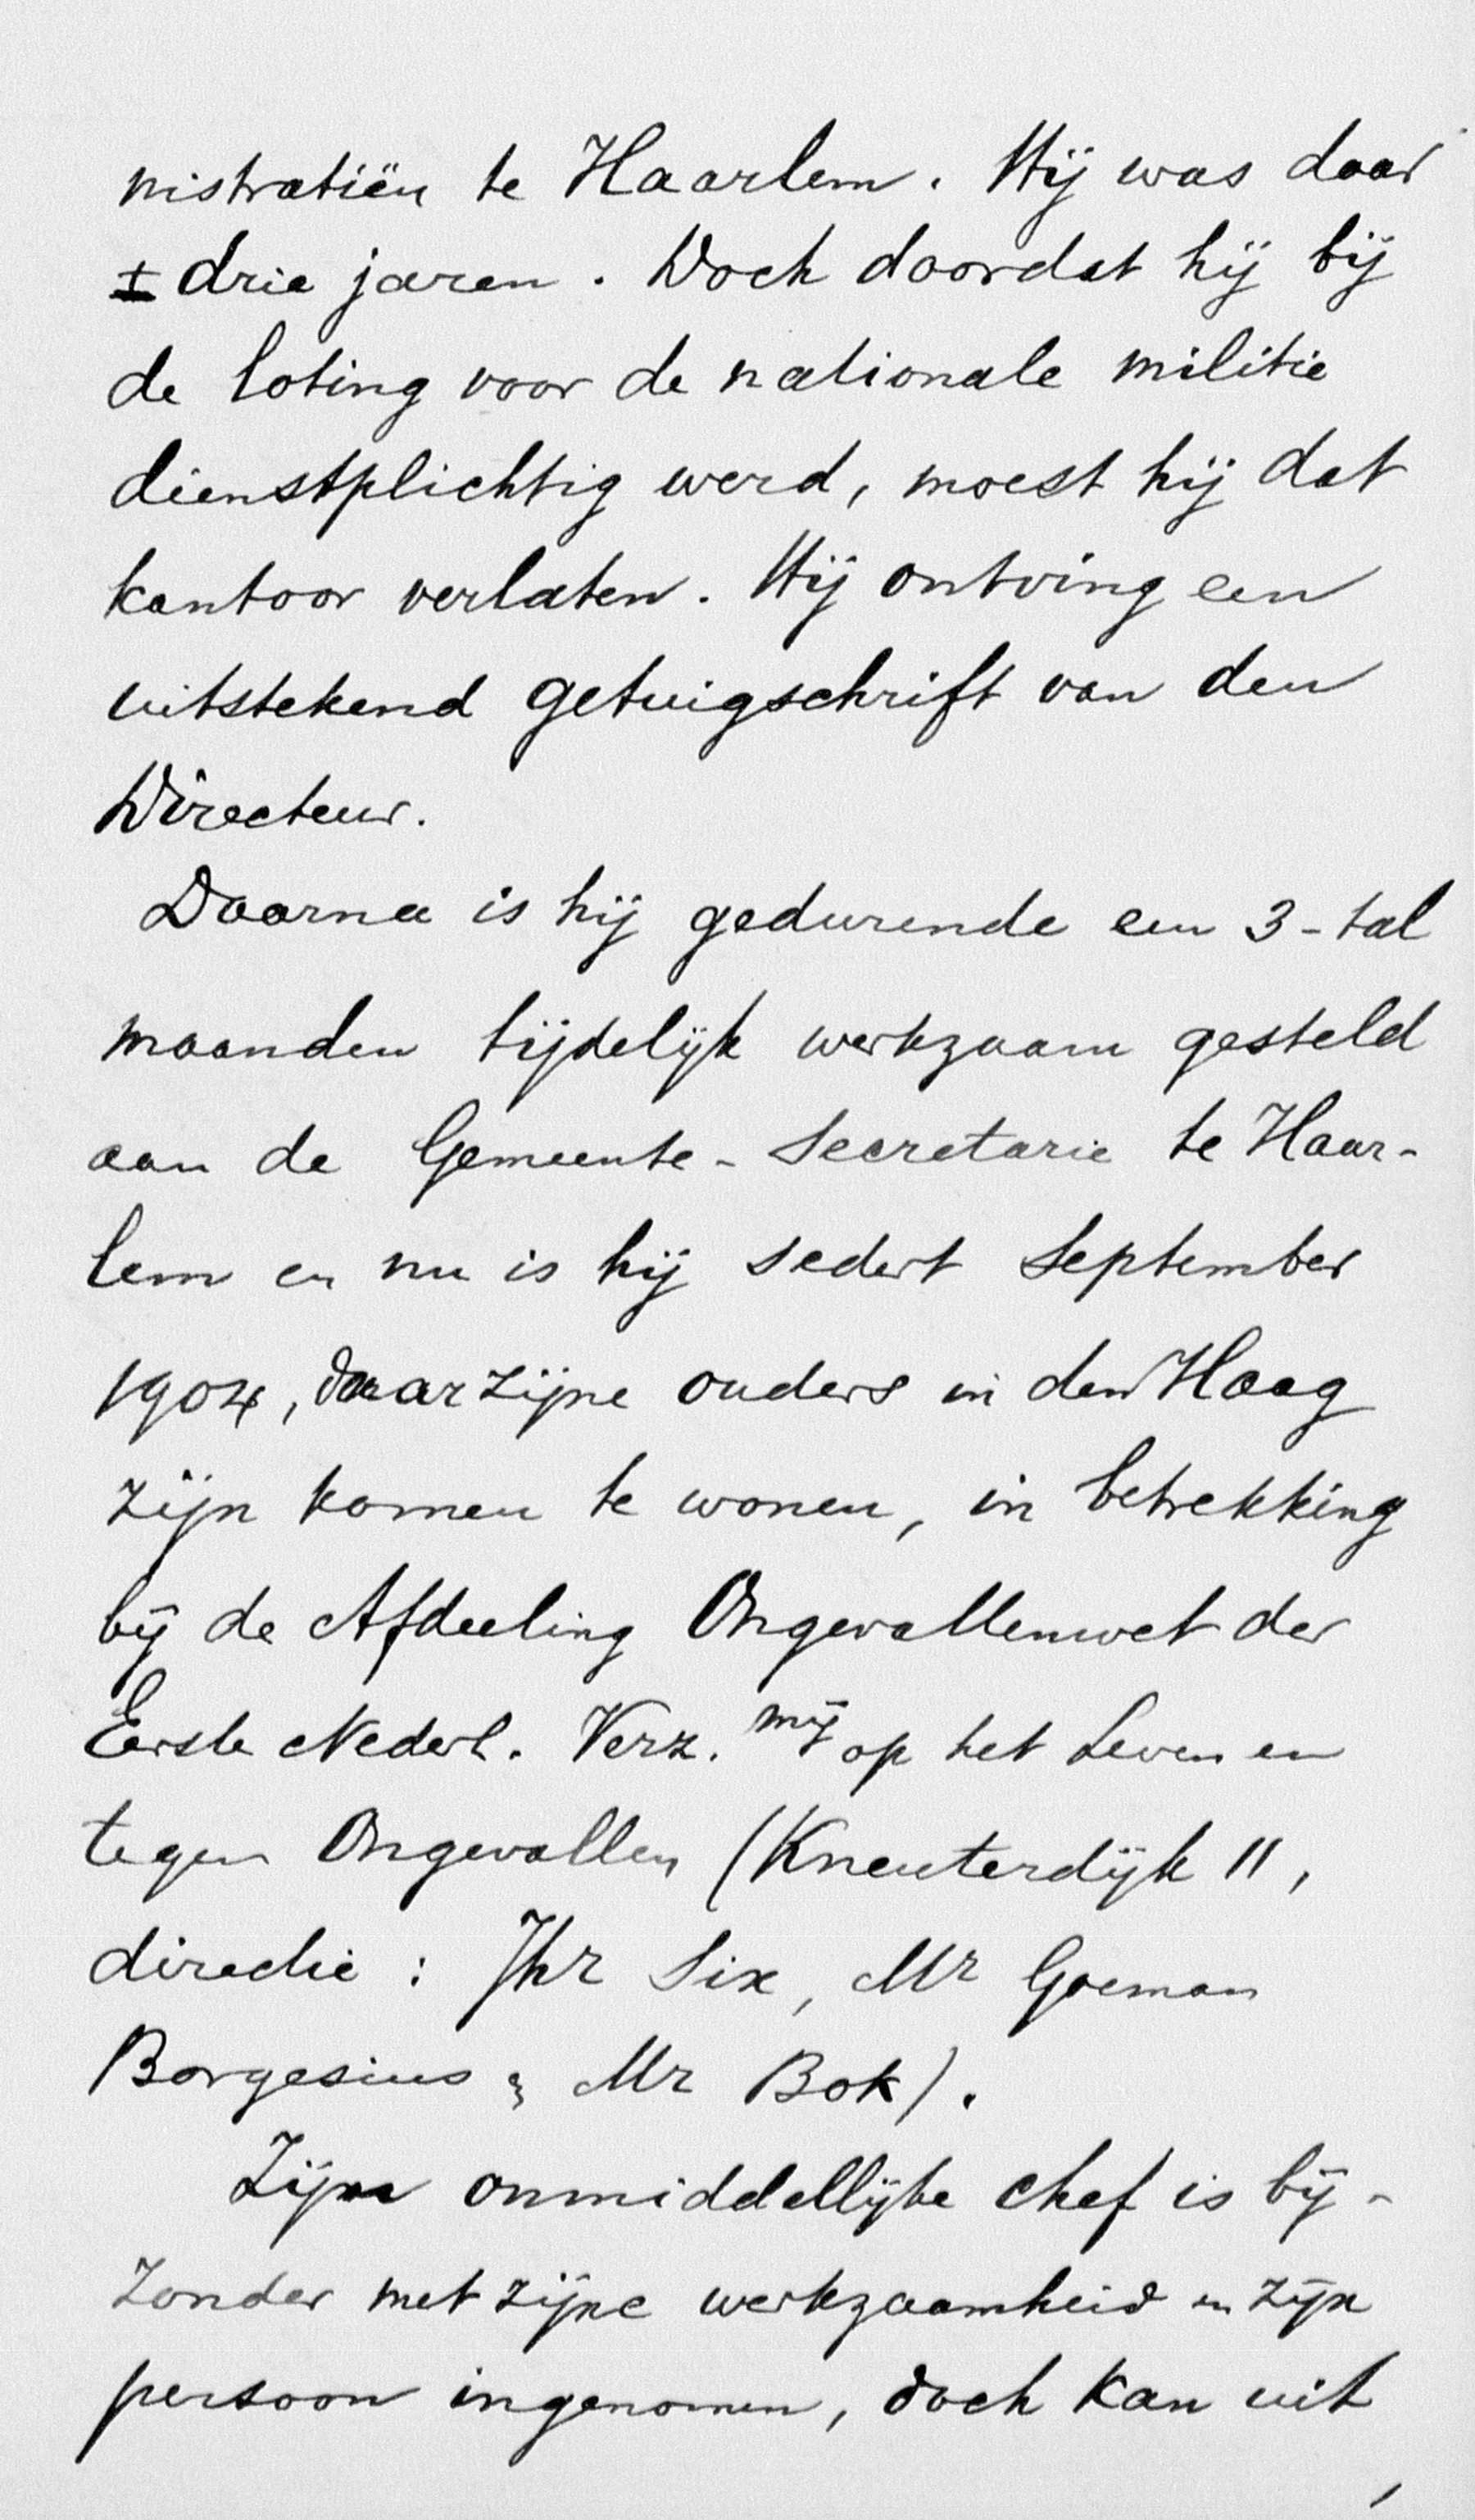 nistratiën te Haarlem. Hij was daar
± drie jaren. Doch doordat hij bij
de loting voor de nationale militie
dienstplichtig werd, moest hij dat
kantoor verlaten. Hij ontving een
uitstekend getuigschrift van den
Directeur.
Daarna is hij gedurende een 3-tal
maanden tijdelijk werkzaam gesteld
aan de Gemeente-Secretarie te Haar-
lem en nu is hij sedert September
1904, daar zijne ouders in den Haag
zijn komen te wonen, in betrekking
bij de Afdeeling Ongevallenwet der
Eerste Nederl. Verz. Mij op het Leven en
tegen Ongevallen (Kneuterdijk 11,
directie: Jhr Six, Mr Goeman
Borgesius & Mr Bok).
Zijn onmiddellijke chef is bij-
zonder met zijne werkzaamheid en zijn
persoon ingenomen, doch kan uit